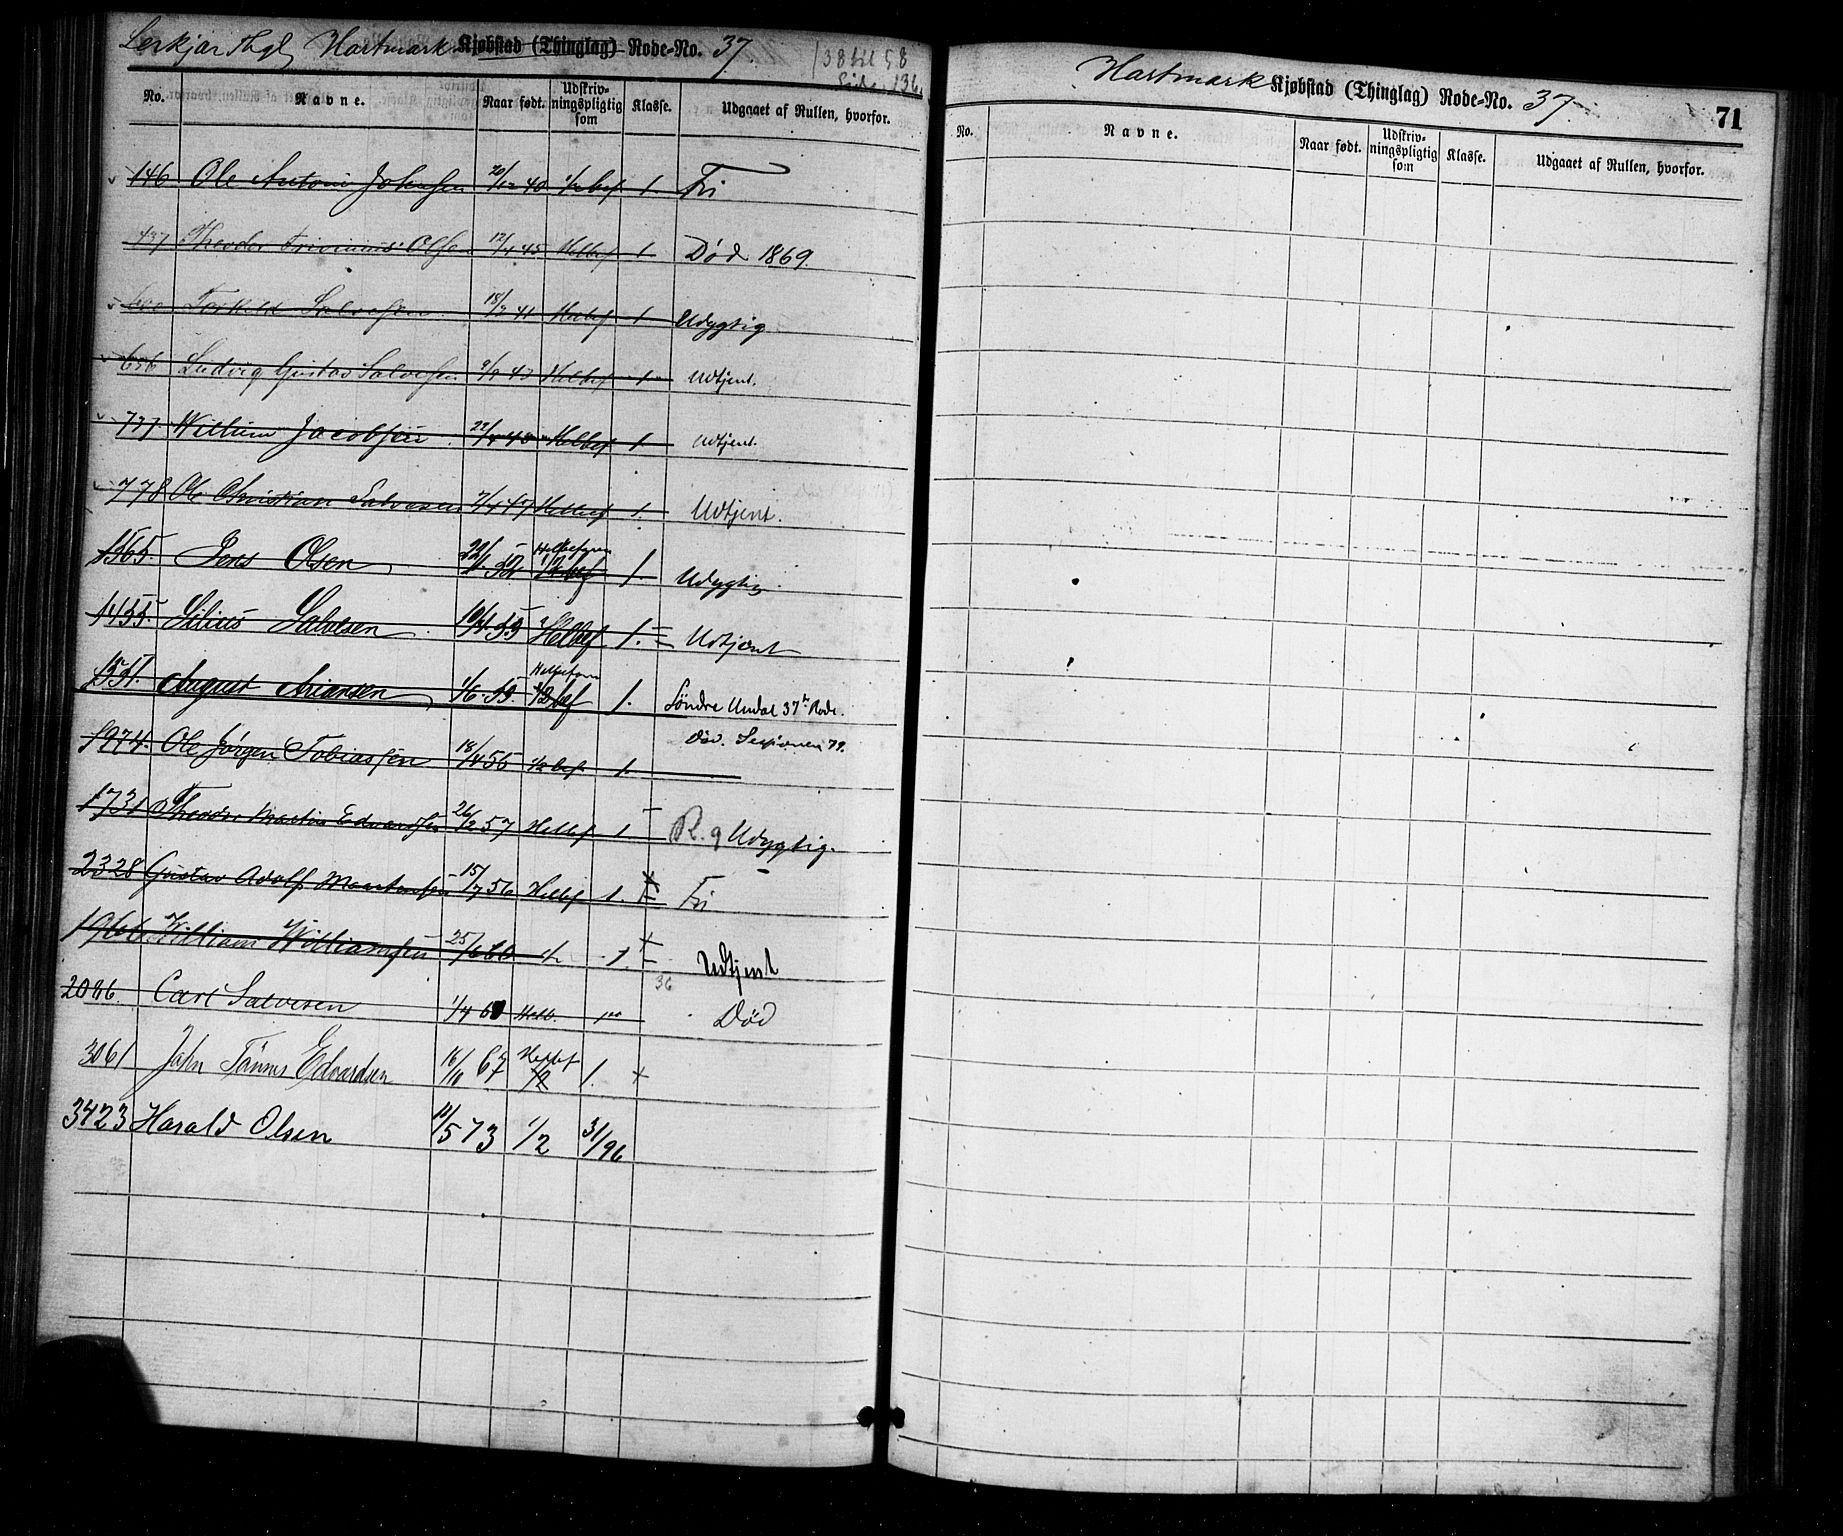 Hartmark Kjøbstad (Thinglag) Rode-No. 37.
38 til 58
Side 136.
No. Navne. Naar født. Udskrivningspligtig som Klasse. Udgaaet af Rullen, hvorfor.
146 Ole Antoni Johnsen 20/12 40 1/2 bef 1. Fri
Theodor Olsen 12/4 45 Helbef 1 Død 1869
600 Torkild Salvesen 18/2 41 Helbef 1 Udygtig
656 Ludvig Gustav Salvesen Helbef 1 Udtjent.
737 William Jacobsen Helbef 1. Udtjent.
778 Ole Christian Salvesen Helbef 1. Udtjent.
1365. Jens Olsen 22/1 52 Helbefaren 1/2 bef 1. Udygtig
1455. Silius Salvesen 19/4 53 Helbef 1. Udtjent
1551. August Ariansen 1/6 55 Helbefaren 1/2 bef 1. Søndre Undal 37te Rode.
1974. Ole Jørgen Tobiassen 18/4 55 1/2 bef 1. Død. Sessionen 79.
1731 Theodor Martin Edvardsen 26/2 57 Helbef 1. R. g Udygtig.
2328 Gustav Adolf Martensen 15/7 56 Helbef 1. Fri
1966 William Williamsen 25/6 60 1. Udtjent
36
2086. Carl Salvesen 1/4 60 Helb. Død
3061 John Tønnes Edvardsen 16/10 67 Helbef 1/2 1. +
3423 Harald Olsen 10/5 73 1/2 31/96
Hartmark Kjøbstad (Thinglag) Rode-No. 37.
71
No. Navne. Naar født. Udskrivningspligtig som Klasse. Udgaaet af Rullen, hvorfor.